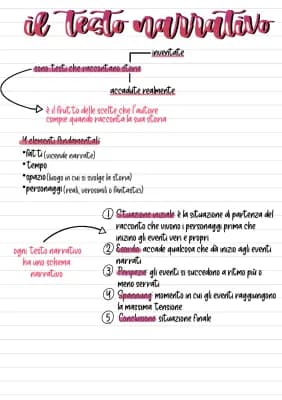 il testo narrativo
inventate
sono testi che raccontano storie
accadute realmente
è il frutto delle scelte che l'autore
compie quando racconta la sua storia
4 elementi fondamentali
•fatti (vicende narrate)
•tempo
•spazio (luogo in cui si svolge la storia)
•personaggi (reali, verosimili o fantastici)
ogni testo narrativo
ha uno schema
narrativo
① Situazione iniziale è la situazione di partenza del
racconto che vivono i personaggi prima che
inizino gli eventi veri e propri
② Esordio accade qualcosa che dà inizio agli eventi
narrati
③ gli eventi si succedono a ritmo più o
meno serrati
④ Spannung momento in cui gli eventi raggiungono
la massima tensione
⑤ Conclusione situazione finale